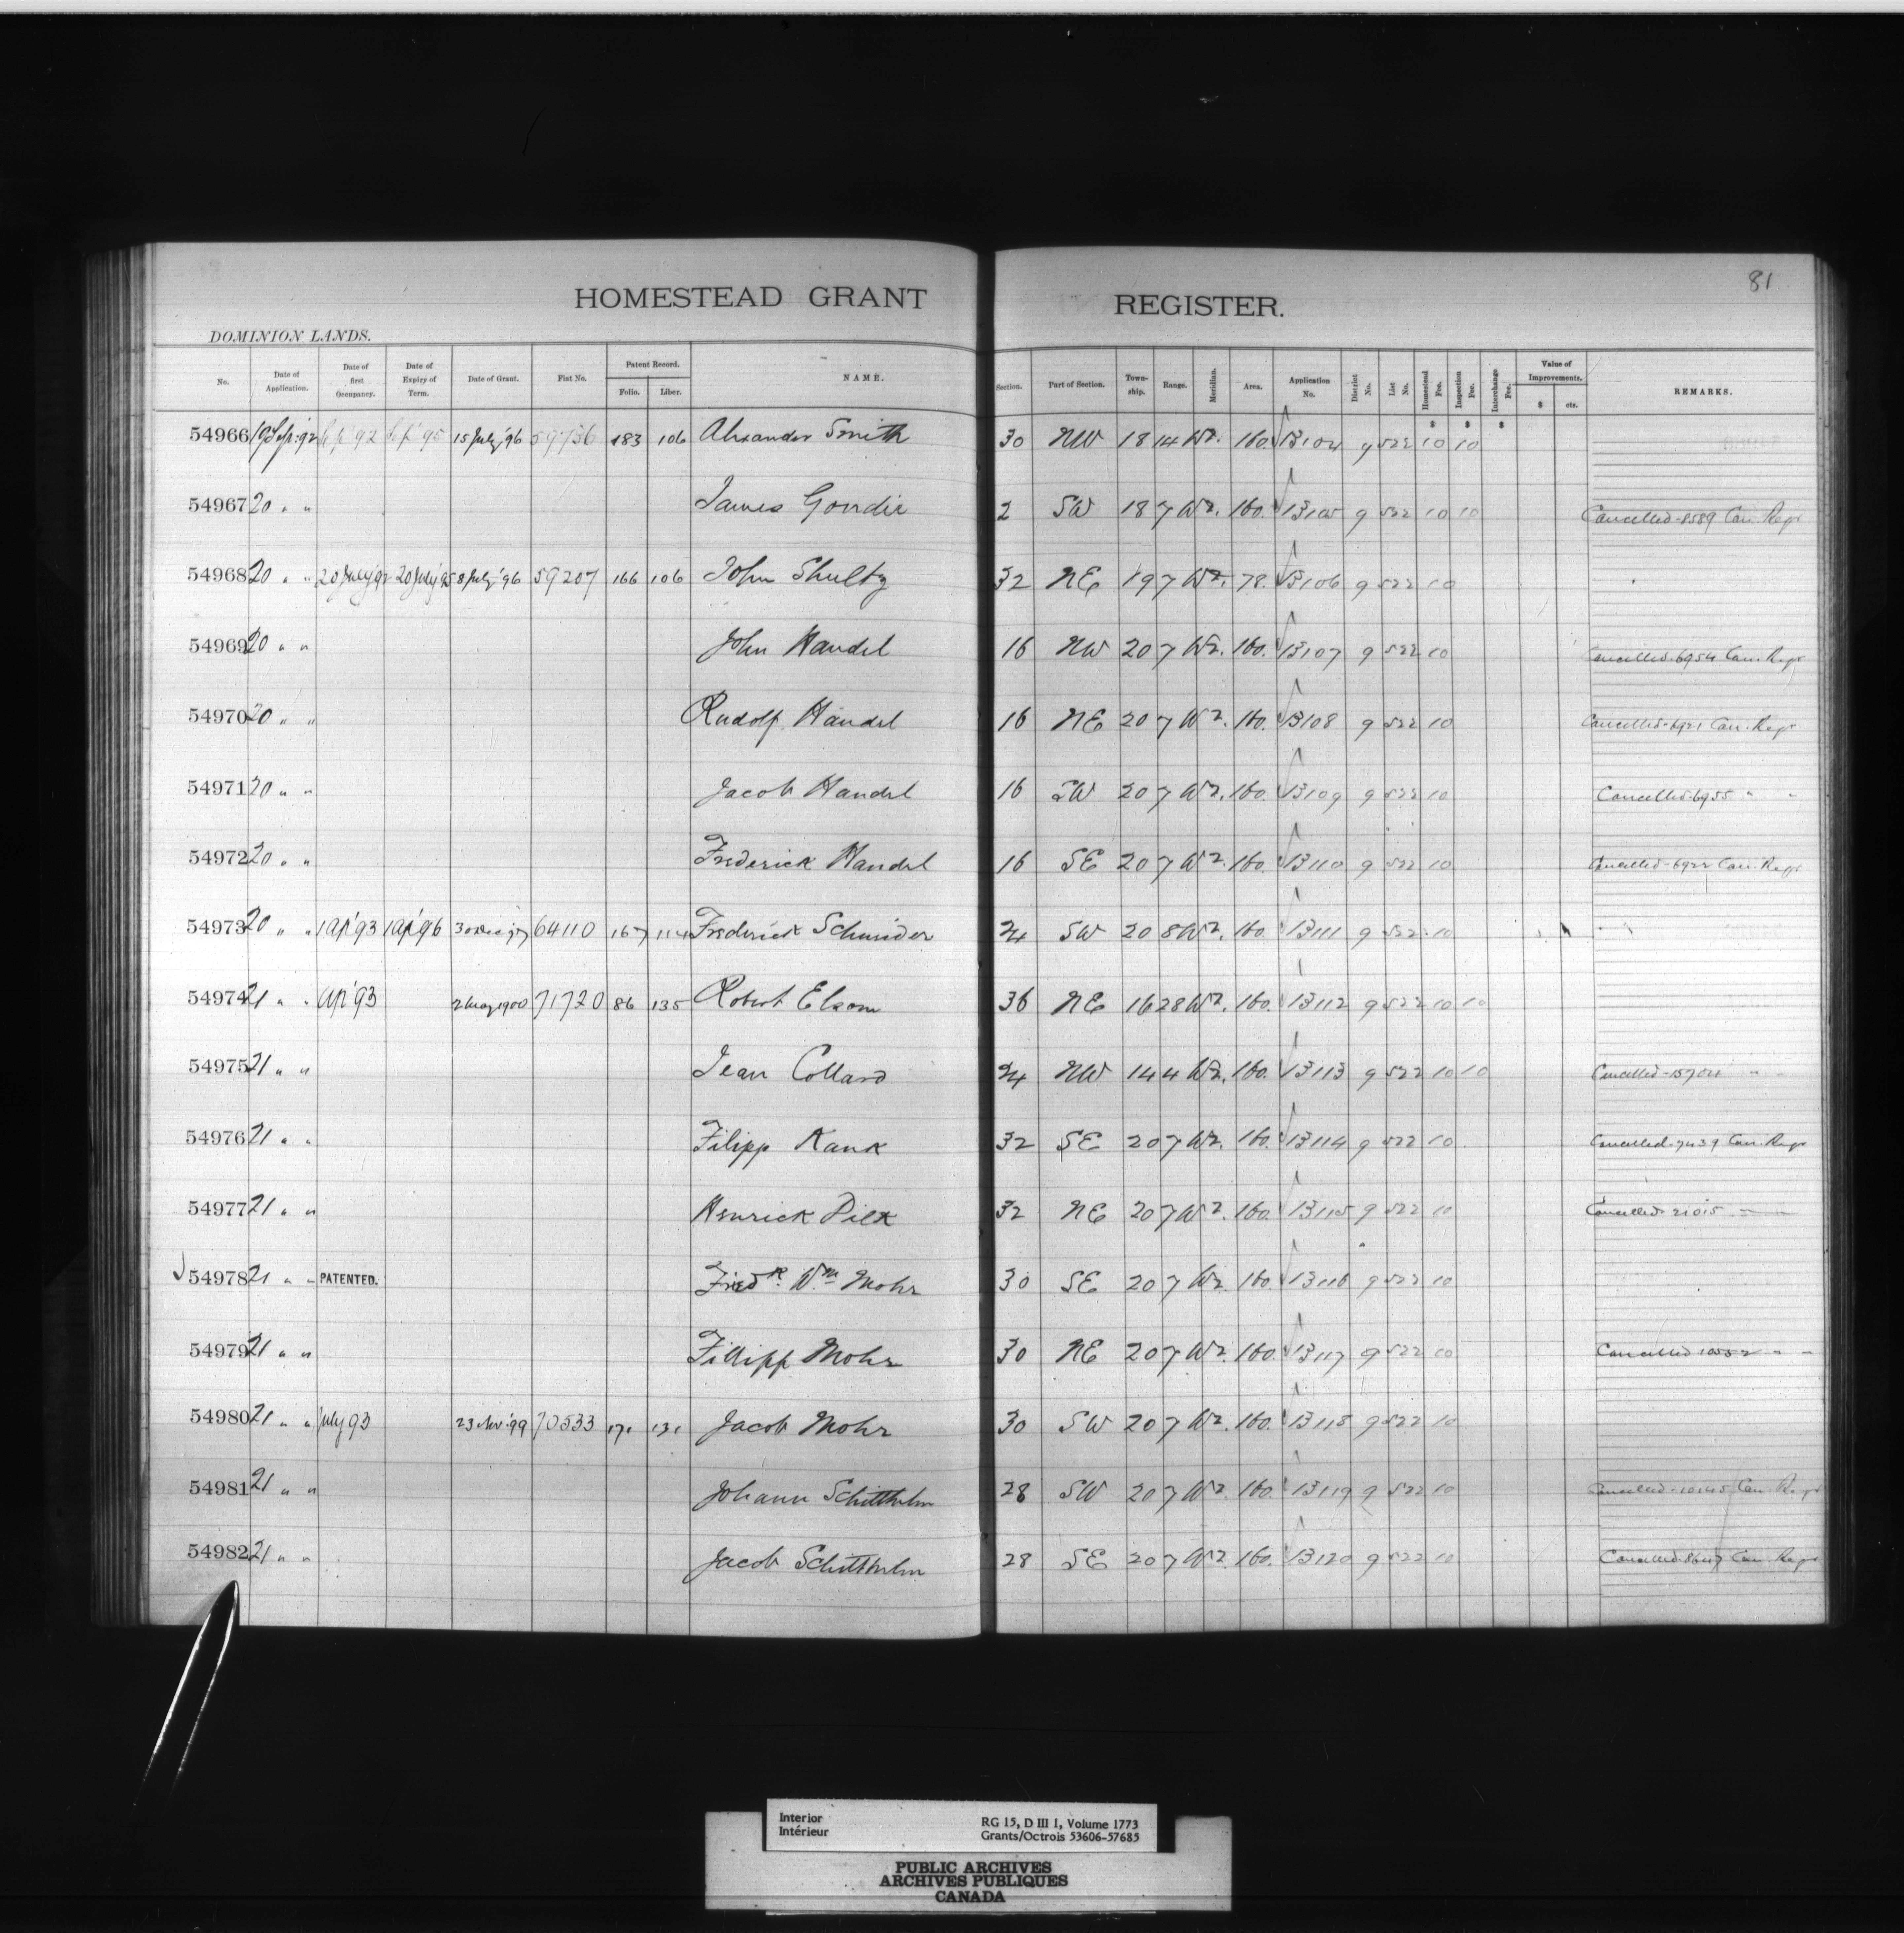 81
HOMESTEAD GRANT REGISTER.
DOMINION LANDS.
No. Date of Application. Date of first Occupancy. Date of Expiry of Term. Date of Grant. Fiat No. Patent Record. Folio. Liber. NAME. Section. Part of Section. Township. Range. Meridian. Area. Application No. District No. List No. Homestead Fee. Inspection Fee. Interchange Fee. Value of Improvements. $ cts. REMARKS.
$ $ $
54966 19 Sep. 92 15 July '96 59736 183 106 Alexander Smith 30 NW 18 14 W2. 160. 13104 9 522 10 10
54967 20 " " James Goudie 2 SW 18 7 W2. 160. 13105 9 522 10 10 Cancelled-8589 Can. Regr
54968 20 " " 20 July '92 20 July '95 8 July '96 59207 166 106 John Shultz 32 NE 19 7 W2. 78. 13106 9 522 10
54969 20 " " John Handel 16 NW 20 7 W2. 160. 13107 9 522 10 Cancelled-6954 Can. Regr
54970 20 " " Rudolf Handel 16 NE 20 7 W2. 160. 13108 9 522 10 Cancelled-6921 Can. Regr
54971 20 " " Jacob Handel 16 SW 20 7 W2. 160. 13109 9 522 10 Cancelled-6955 " "
54972 20 " " Frederick Handel 16 SE 20 7 W2. 160. 13110 9 522 10 Cancelled-6922 Can. Regr
54973 20 " " 1 Ap '93 1 Ap '96 30 Dec 97 64110 167 114 Frederick Schneider 24 SW 20 8 W2. 160. 13111 9 522 10
54974 21 " " Ap '93 2 May 1900 71720 86 135 Robert Elsom 36 NE 16 28 W2. 160. 13112 9 522 10 10
54975 21 " " Jean Collard 24 NW 14 4 W2. 160. 13113 9 522 10 10 Cancelled-15704 " "
54976 21 " " Filipp Kank 32 SE 20 7 W2. 160. 13114 9 522 10 Cancelled-7439 Can. Regr
54977 21 " " Henrick Pilk 32 NE 20 7 W2. 160. 13115 9 522 10 Cancelled-21015
54978 21 " " PATENTED. Fredk. Wm Mohr 30 SE 20 7 W2. 160. 13116 9 522 10
54979 21 " " Fillipp Mohr 30 NE 20 7 W2. 160. 13117 9 522 10 Cancelled 10552 " "
54980 21 " " July 93 23 Nov '99 70533 171 131 Jacob Mohr 30 SW 20 7 W2. 160. 13118 9 522 10
54981 21 " " Johann Schitthelm 28 SW 20 7 W2. 160. 13119 9 522 10 Cancelled-10145 Can. Regr
54982 21 " " Jacob Schitthelm 28 SE 20 7 W2. 160. 13120 9 522 10 Cancelled-8647 Can. Regr
Interior
Intérieur
RG 15, D III 1, Volume 1773
Grants/Octrois 53606-57685
PUBLIC ARCHIVES
ARCHIVES PUBLIQUES
CANADA